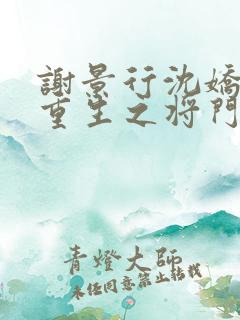 謝景行沈嬌
重生之将門
青燈大師
未任同意禁止轉載